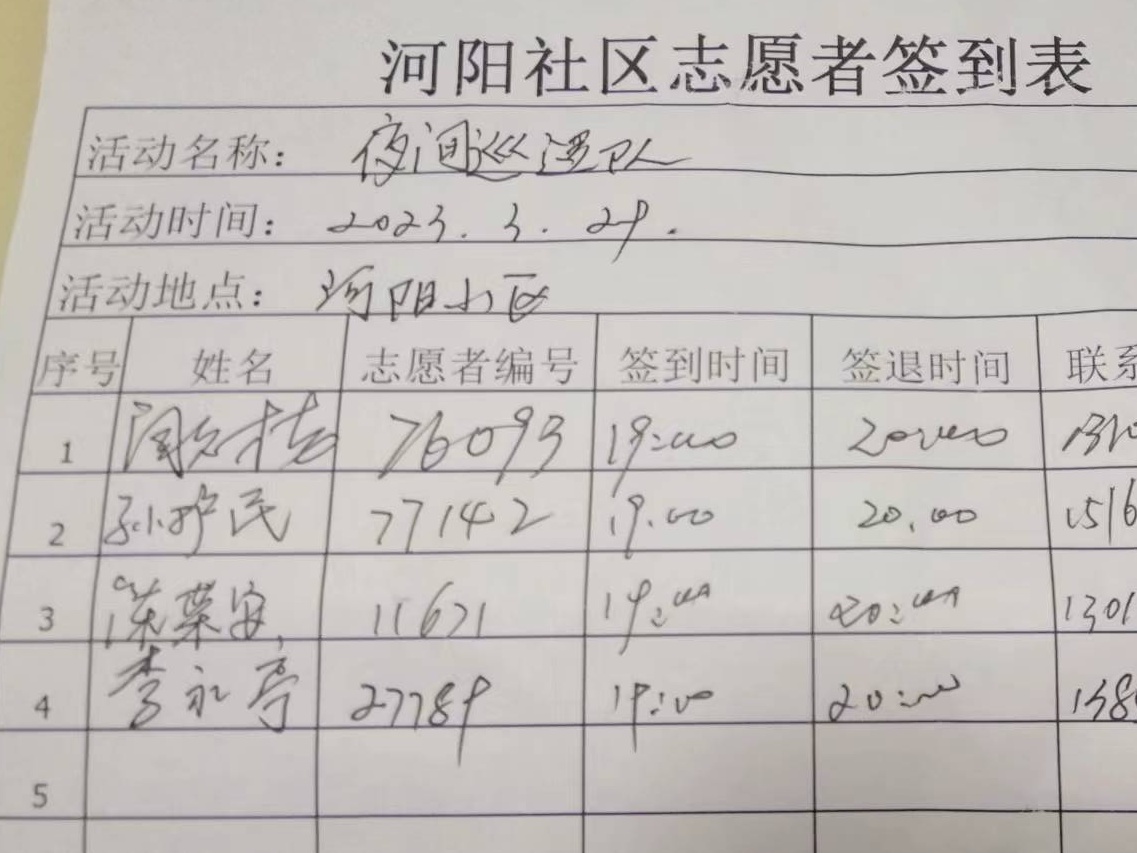 河阳社区志愿者签到表
活动名称： 夜间巡逻队
活动时间： 2023.3.29.
活动地点： 河阳小区
序号 姓名 志愿者编号 签到时间 签退时间 联系
1 76093 19:00 20:00 1310
2 孙 民 77142 19.00 20.00 1516
3 陈荣安 11671 19:00 20:00 1301
4 李永亭 27789 19:00 20:00 138
5